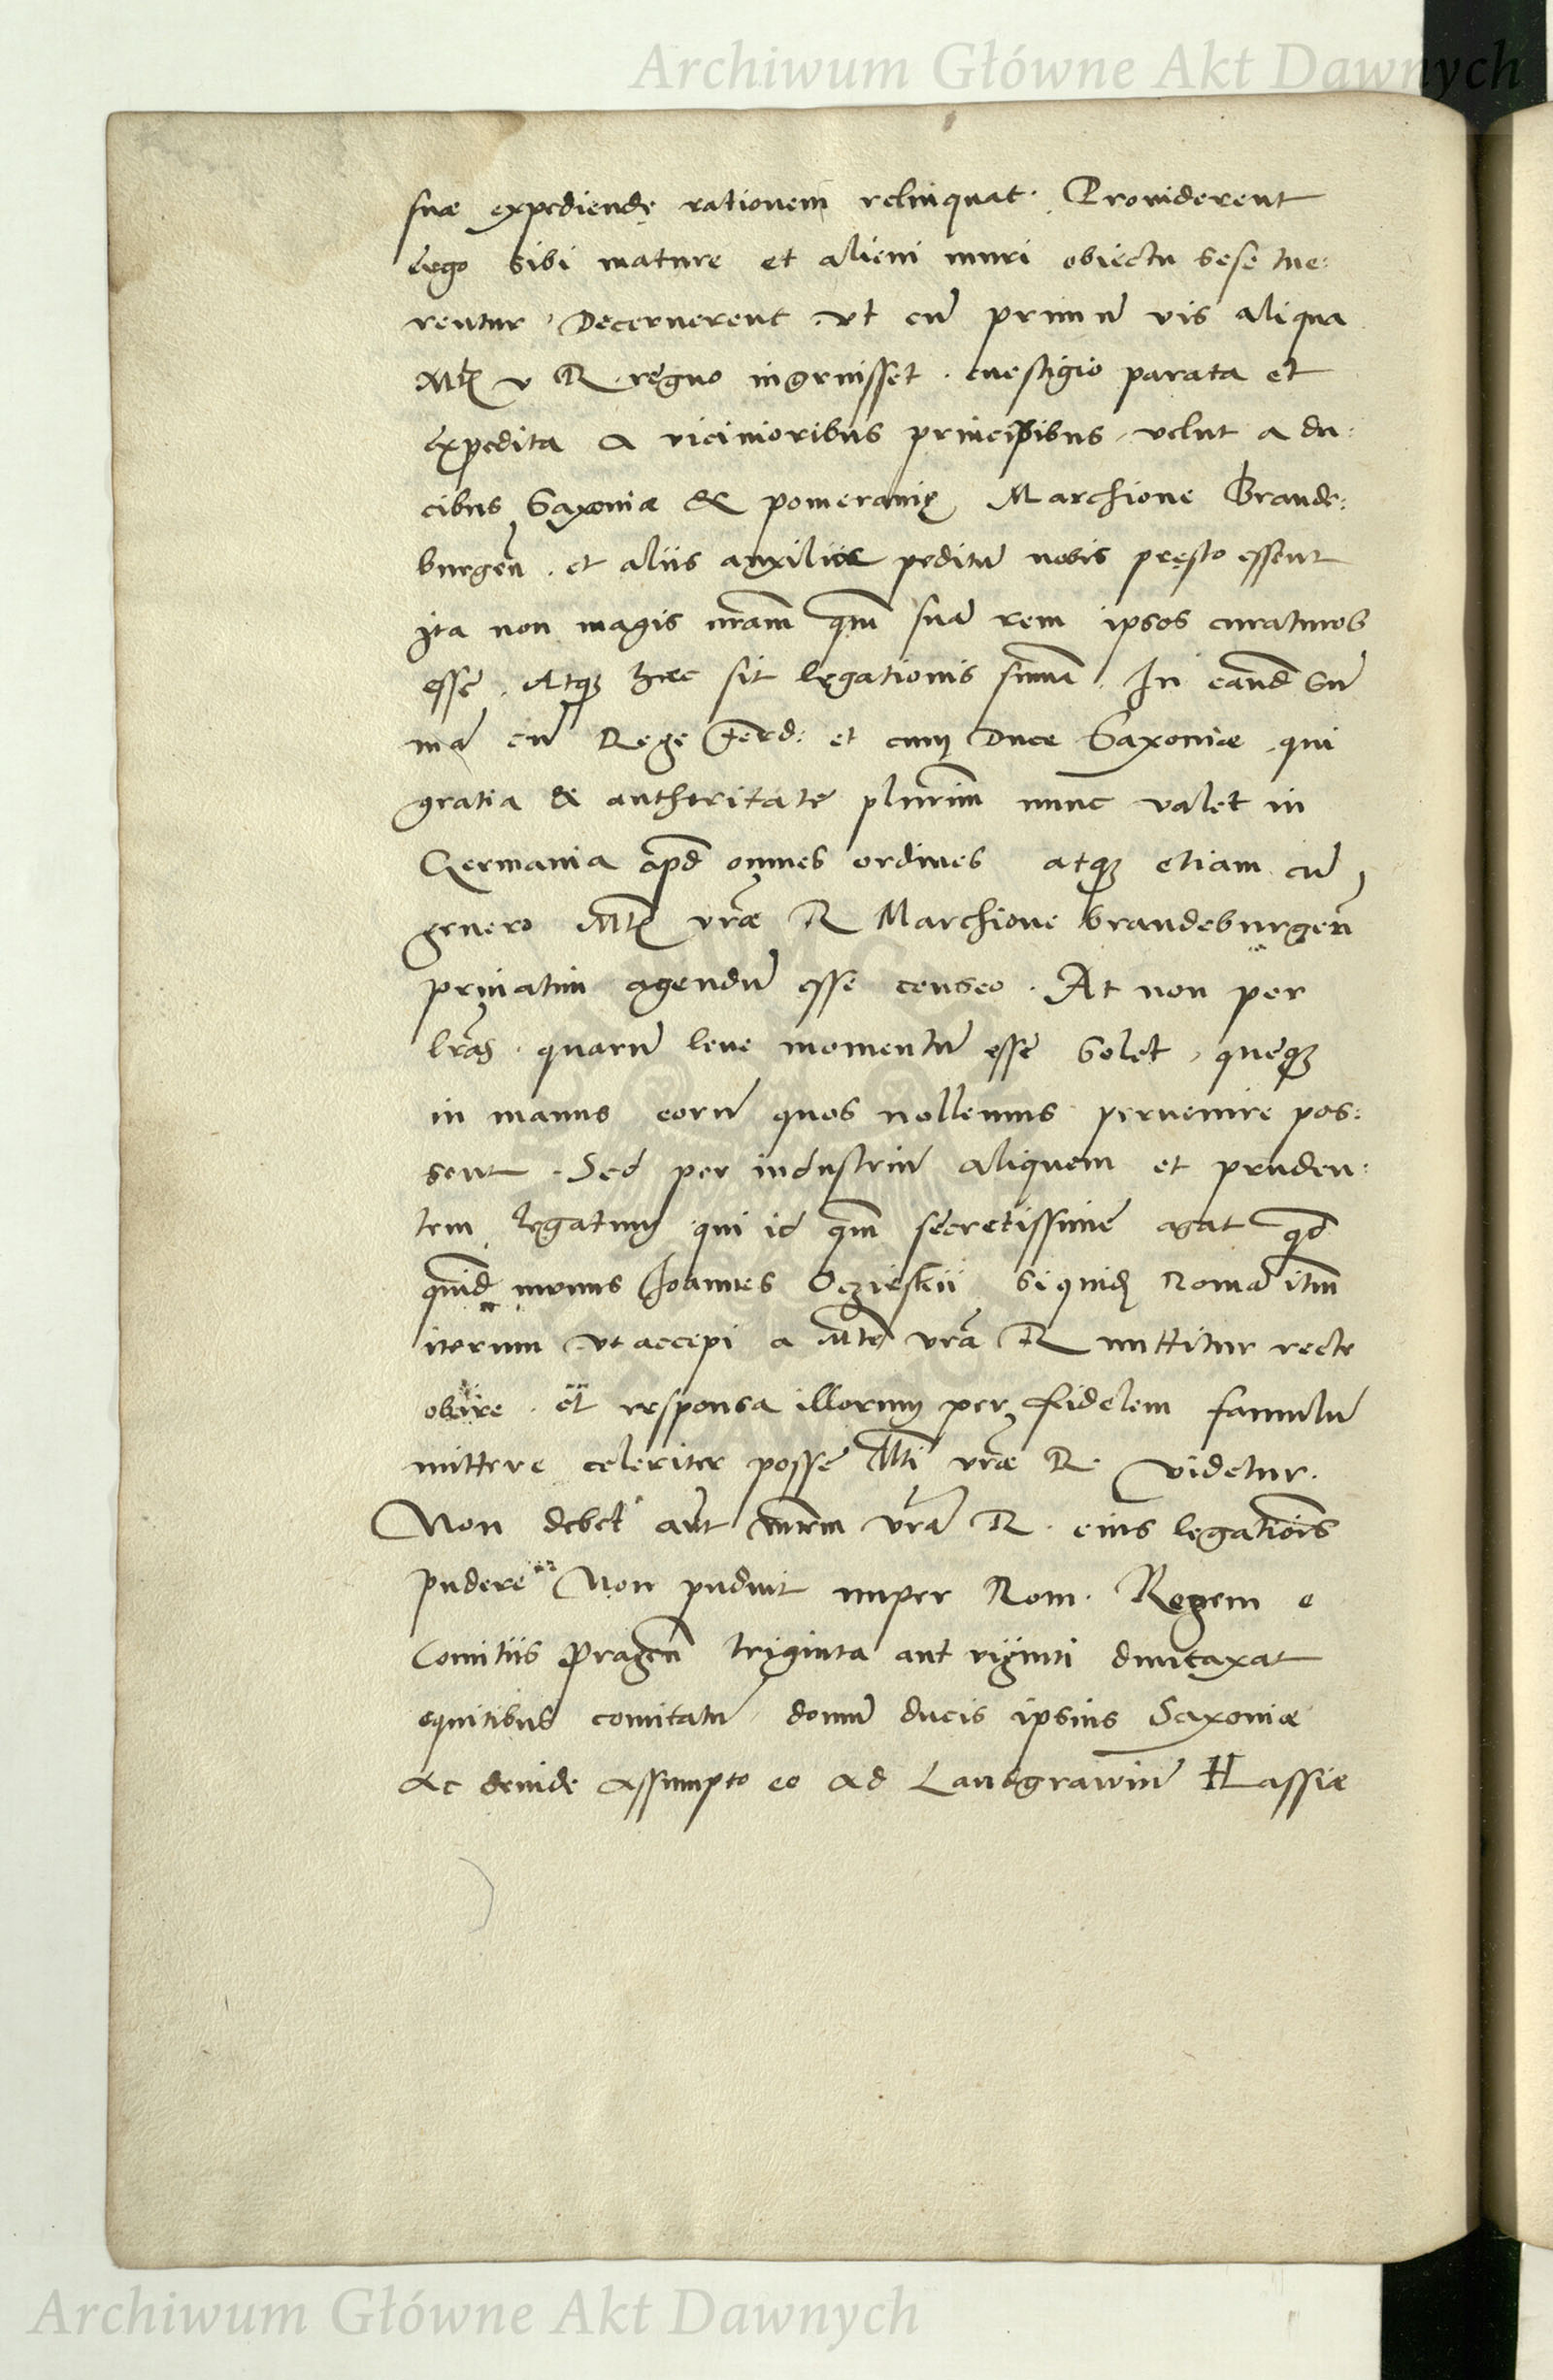 Archiwum Główne Akt Dawnych
suæ expediendę rationem relinquat. Prouiderent
ergo sibi mature et alieni muri obiectu sese tue:
rentur. Decernerent vt cū primū vis aliqua
MtĮ v R. regno ingruisset. euestigio parata et
expedita a vicinioribus principibus, velut a du:
cibus Saxoniæ & pomeranię Marchione Brande:
burgeñ. et aliis auxilia peditū nobis pręsto essent
Ita non magis nr̄am qm̄ suā rem ipsos curaturos
esse. Atqʒ hæc sit legationis sum̄a. In eand̄ sum̄
mā cū Rege Ferd: et cum Duce Saxoniæ, qui
gratia & authoritate plurim̄ nunc valet in
Germania apd̄ omnes ordines atqʒ etiam cū
genero Mtį vr̄æ R Marchione brandeburgeñ
priuatim agendū esse censeo. At non per
lr̄as. quarū leue momentū esse solet, quęqʒ
in manus eorū quos nollemus peruenire pos:
sent. Sed per industriū aliquem et pruden:
tem legatum qui id qm̄ secretissime agat qd̄
quid̄ munus Joannes Ocziesskii siquid̨ Romā itm̄
iterum vt accepi a Mte vr̄a R mittitur recte
obire. et responsa illorum per fidelem famulū
mittere celeriter posse Mti vr̄æ R. videtur.
Non debet aūt mtem vr̄ā R. eius legatiōis
pudere Non puduit nuper Rom. Regem e
Comitiis Prageñ triginta aut viginti duntaxat
equitibus comitatū, domū ducis ipsius Saxoniæ
Ac deinde assumpto eo ad Landgrawiū Hassiæ
Archiwum Główne Akt Dawnych